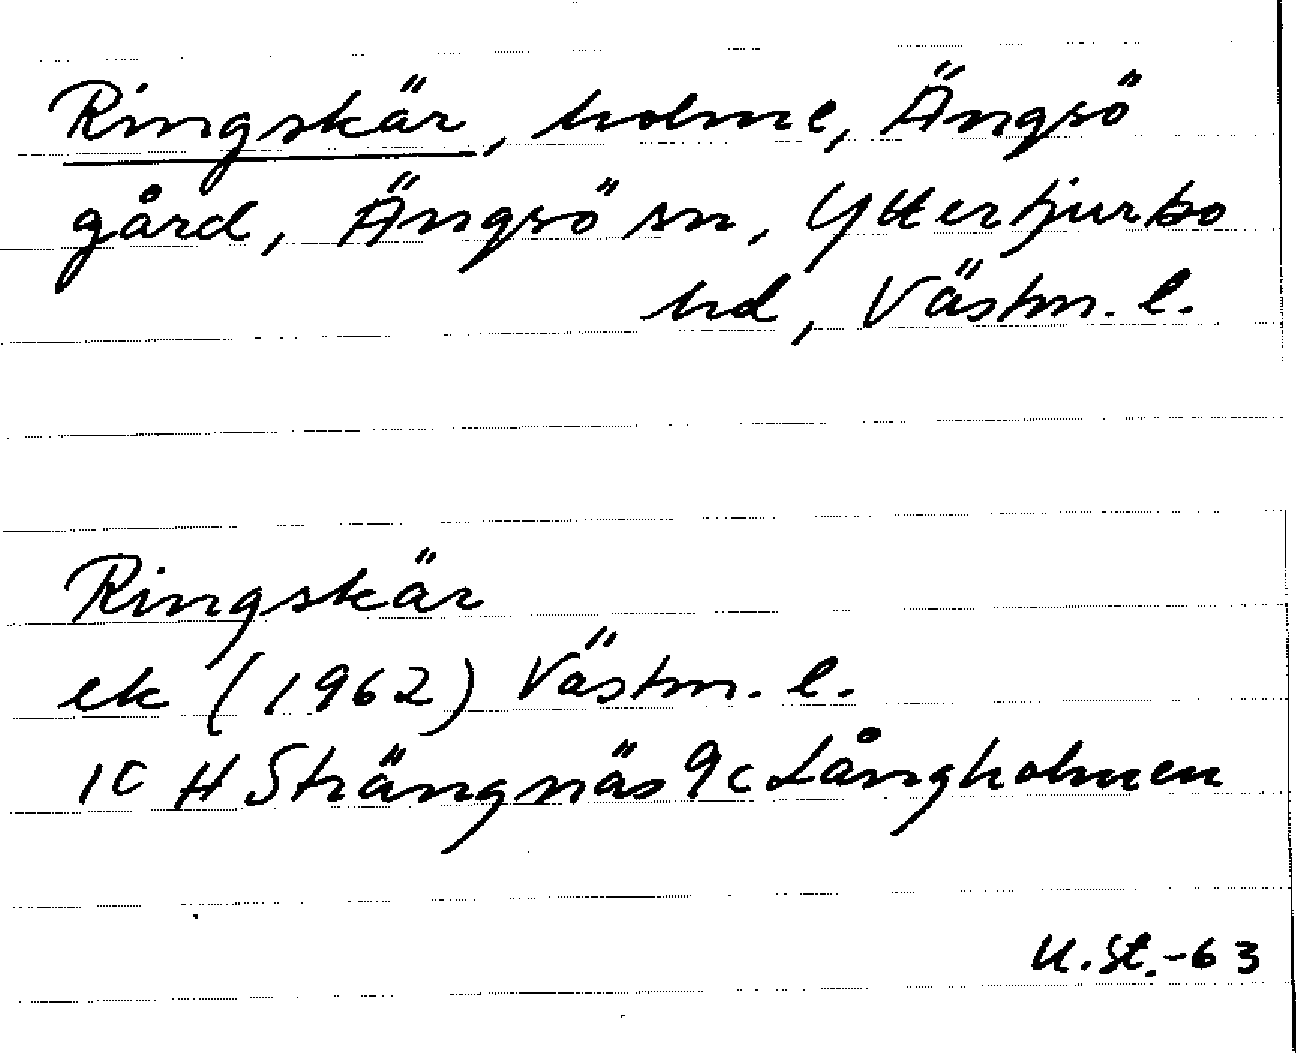 Ringskär, holme, Ängsö
gård, Ängsö sn, Yttertjurbo
hd, Västm. l.
Ringskär
ek (1962) Västm. l.
10 H Strängnäs 9c Långholmen
U. St. -63